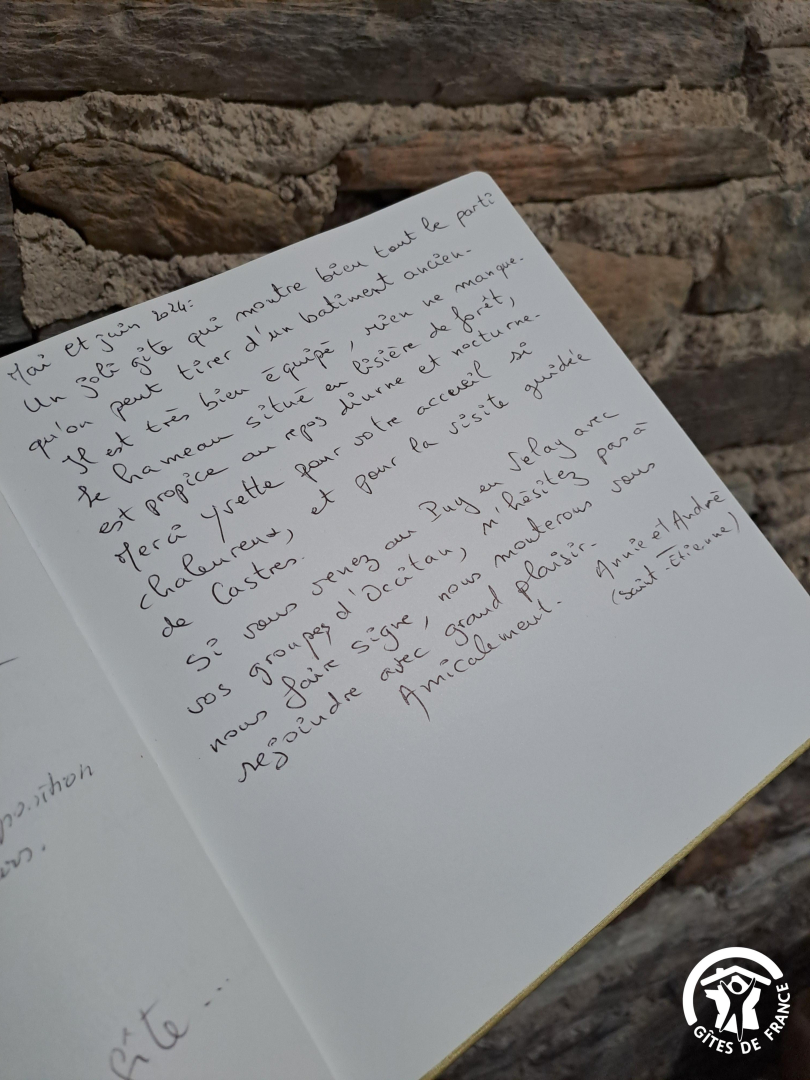 Mai et juin 2024:
Un joli gîte qui montre bien tout le parti
qu'on peut tirer d'un batiment ancien.
Il est très bien équipé, rien ne manque.
Le hameau situé en lisière de forêt,
est propice au repos diurne et nocturne.
Merci Yvette pour votre accueil si
chaleureux, et pour la visite guidée
de Castres.
Si vous venez au Puy en Velay avec
vos groupes d'Occitan, n'hésitez pas à
nous faire signe, nous monterons vous
rejoindre avec grand plaisir.
Amicalement.
Annie et André
(Saint-Étienne)
GÎTES DE FRANCE